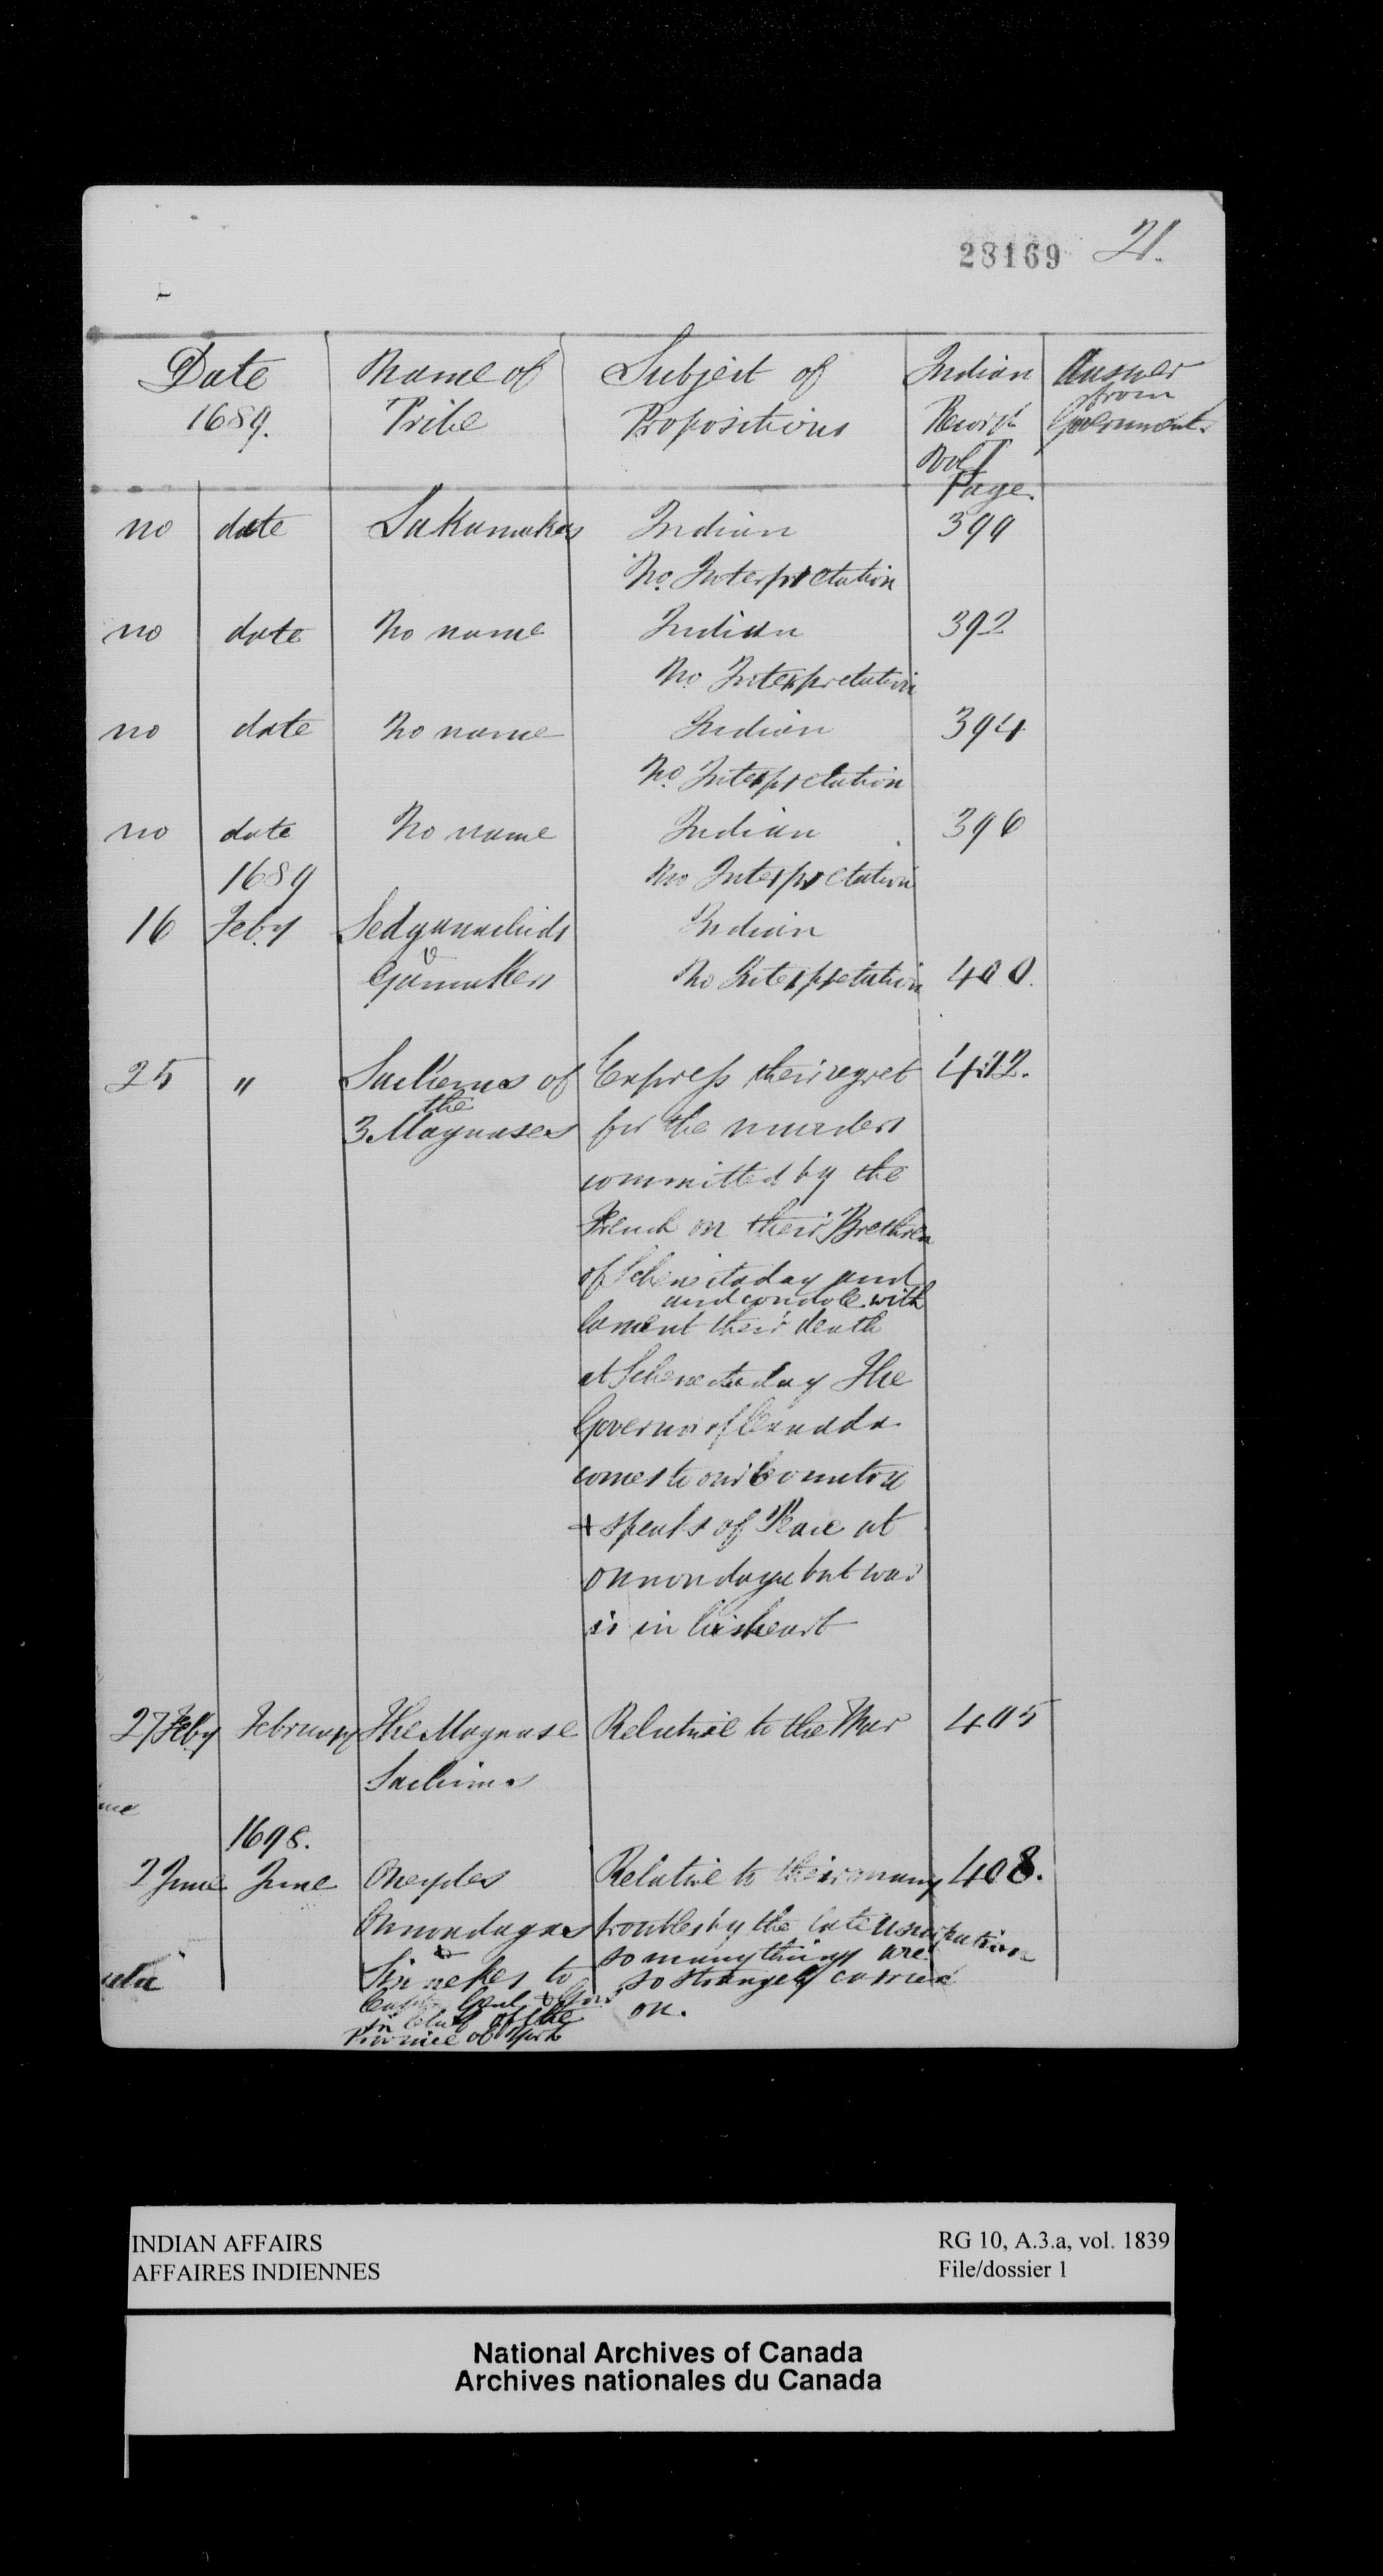 28169 21.
Date Name of Subject of Indian Answer
from
1689. Tribe Propositions Records Government.
Vol 1
Page.
no date Sakamakas Indian 399
No. Interpretation
no date No name Indian 392
No Interpretation
no date No name Indian 394
No. Interpretation
no date No name Indian 396
1689 No Interpretation
16 Feby Indian
No Interpretation 400.
25 " Sachems of Express their regret 402.
the
3 Maquases for the murders
committed by the
French on their Brethren
of Schenectaday and
and condole with
lament their death
at Schenectaday The
Governor of Canada
comes to our Country
+ speaks of Peace at
Onnondage but war
is in his heart
27 Feby February The Maquase Relative to the War 405
Sachims
me
1698.
2 June June Oneydes Relative to their many 408.
Onnondages troubles by the late usurpation
& so many things are
Sinnekes to so strangely carried
Capt. Genl. & Govr on.
in Chief of the
Province of York